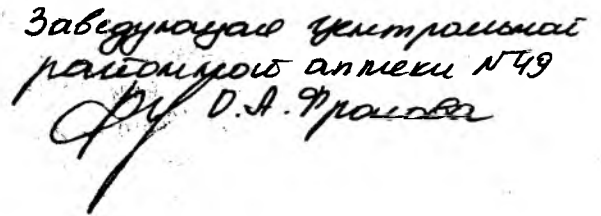 Заведующая центральной
районной аптеки №49
О.А. Фролова